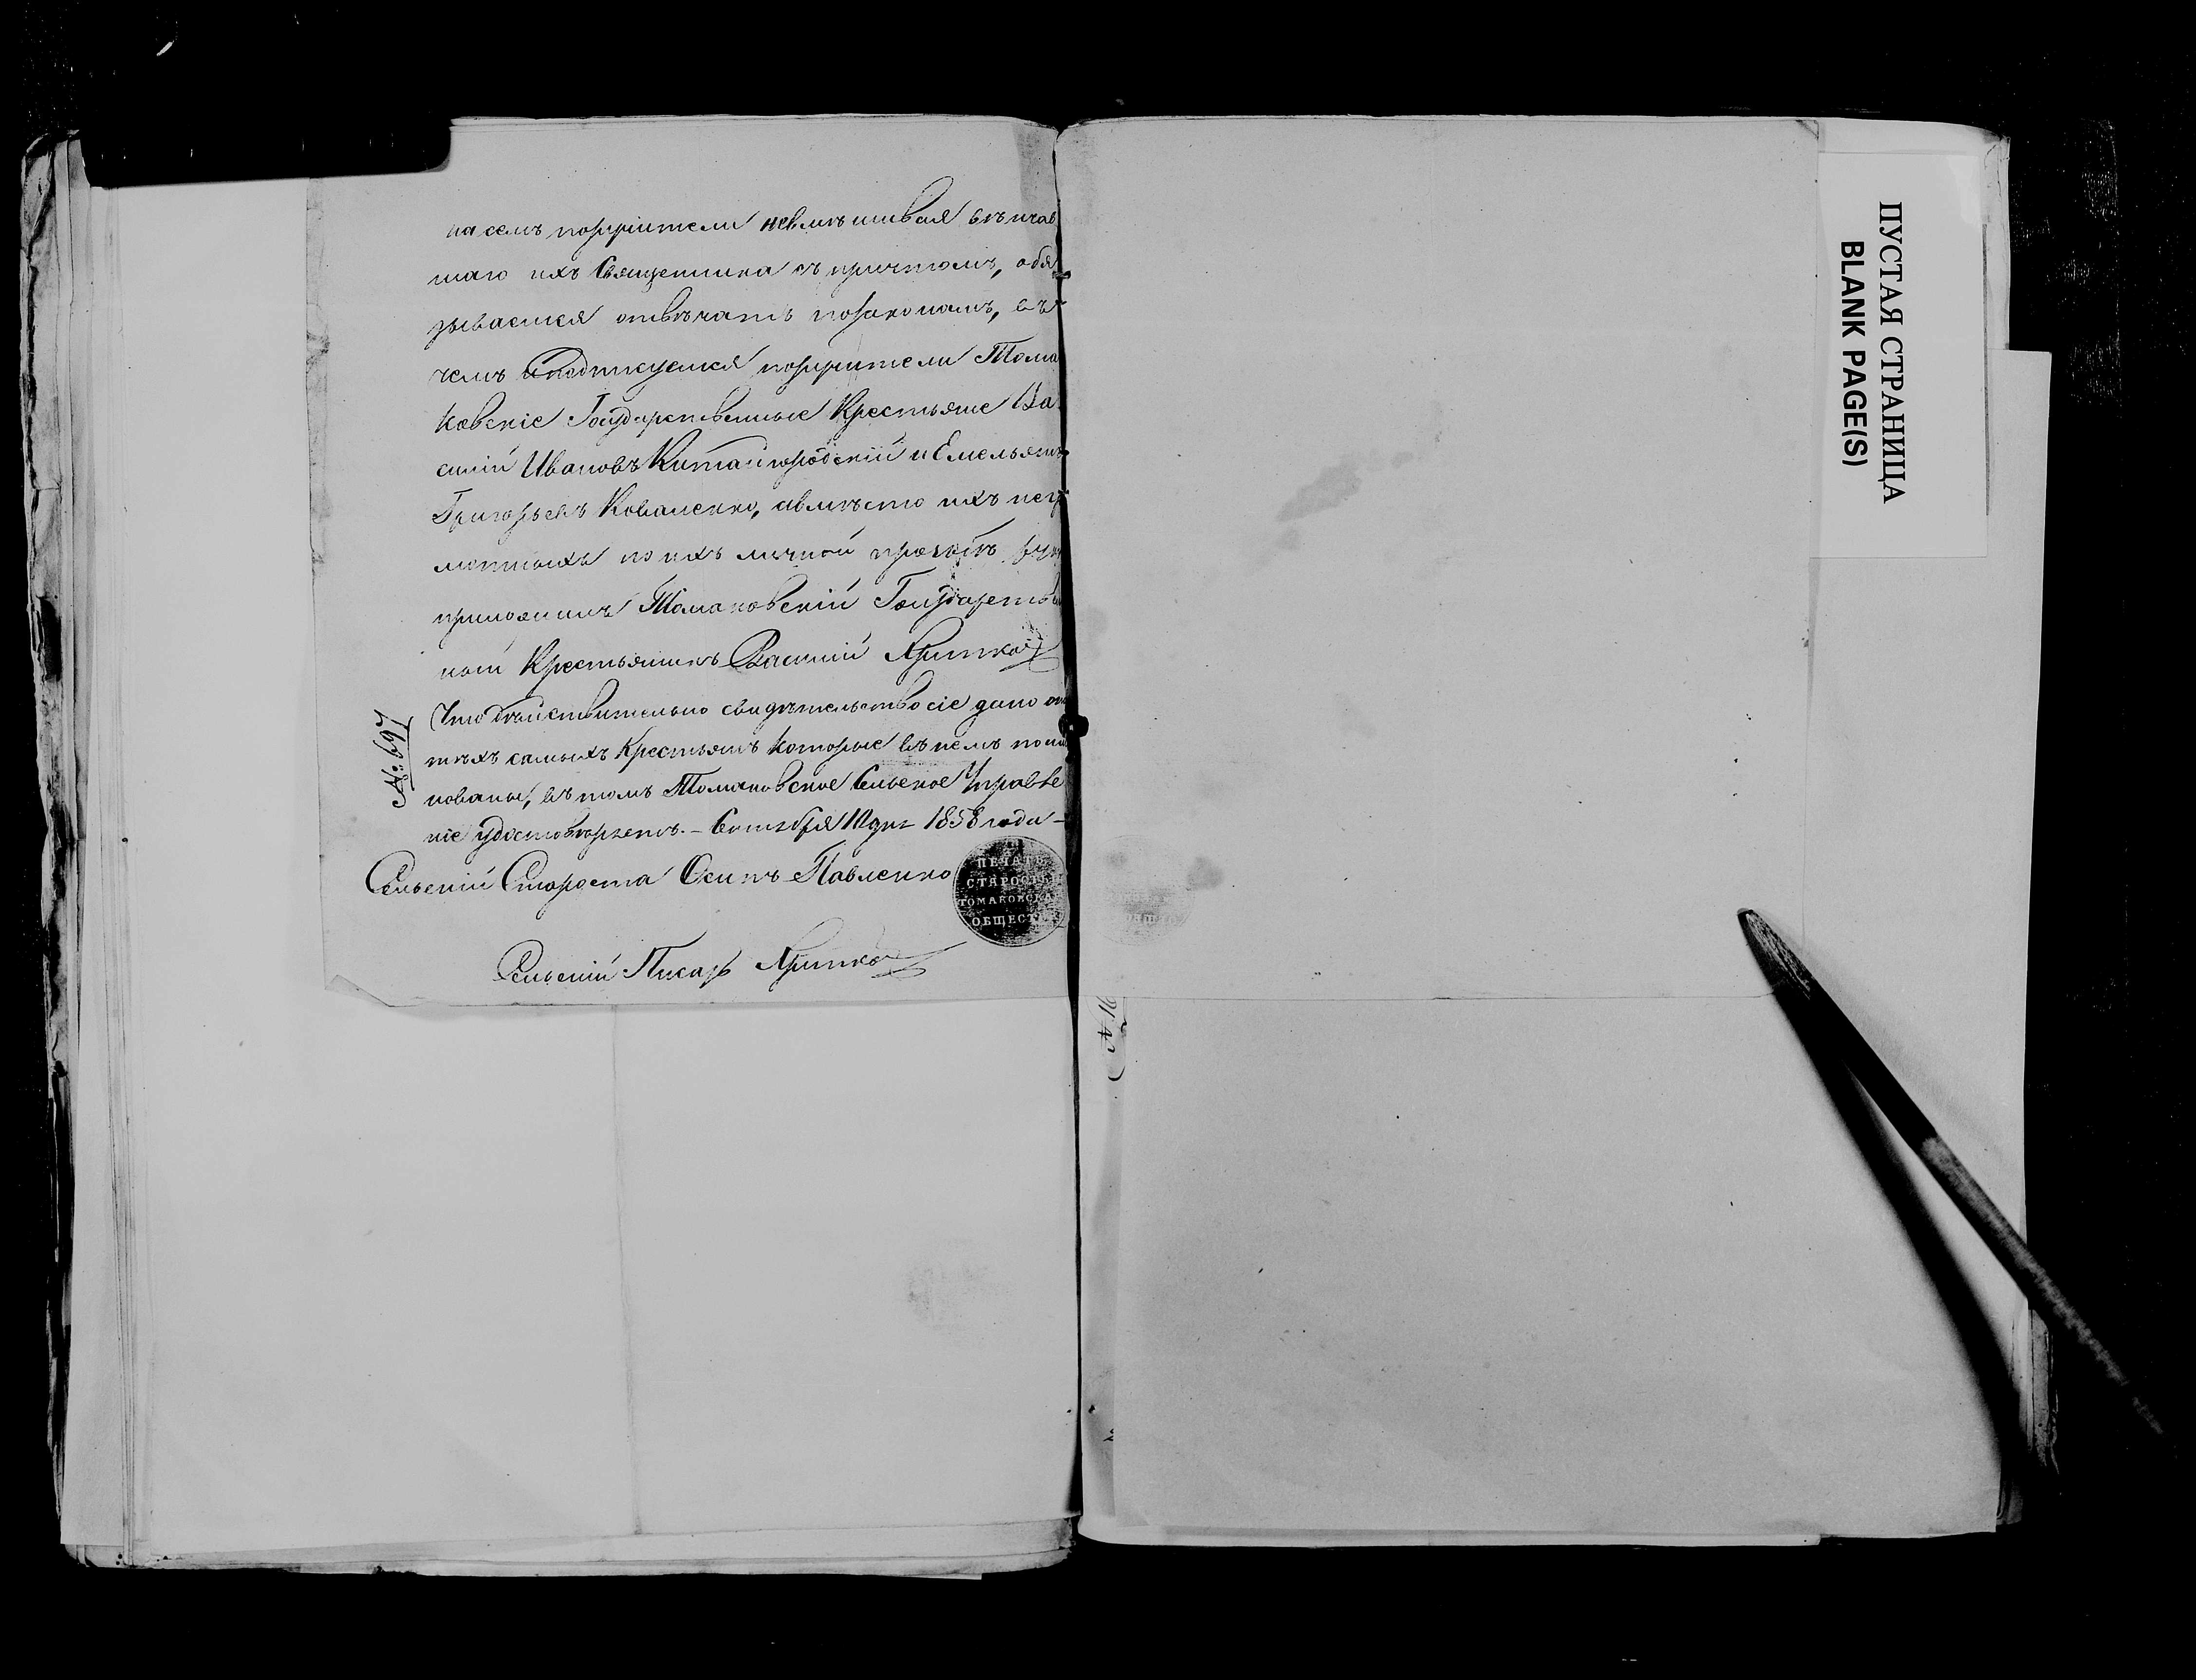 на семъ поручители невмѣшивая вѣнчав
шаго ихъ Священника съ причтомъ, обя
зываемся отвѣчать позаконамъ, въ
чемъ и подписуемся поручители Тома
ковскіе Государственные Крестьяне Ва
силій Ивановъ Китайгородскій и Емельянъ
Григорьевъ Коваленко, авмѣсто ихъ негр
мотныхъ по ихъ личной прозьбѣ рук
приложилъ Томаковскій Государствен
ной Крестьянинъ Василій
Что дѣйствительно свидѣтельство сіе дано отъ
тѣхъ самыхъ Крестьянъ которые въ немъ поиме
нованы, въ томъ Томаковское Сельское Управле
ніе удостовѣряетъ. – Сентября 10 дня 1858 года –
№ 697
Сельскій Староста Осипъ Павленко
ПЕЧАТЬ
СТАРОСТЫ
ТОМАКОВСКА
ОБЩЕСТ
Сельскій Писарь
ПУСТАЯ СТРАНИЦА
BLANK PAGE(S)